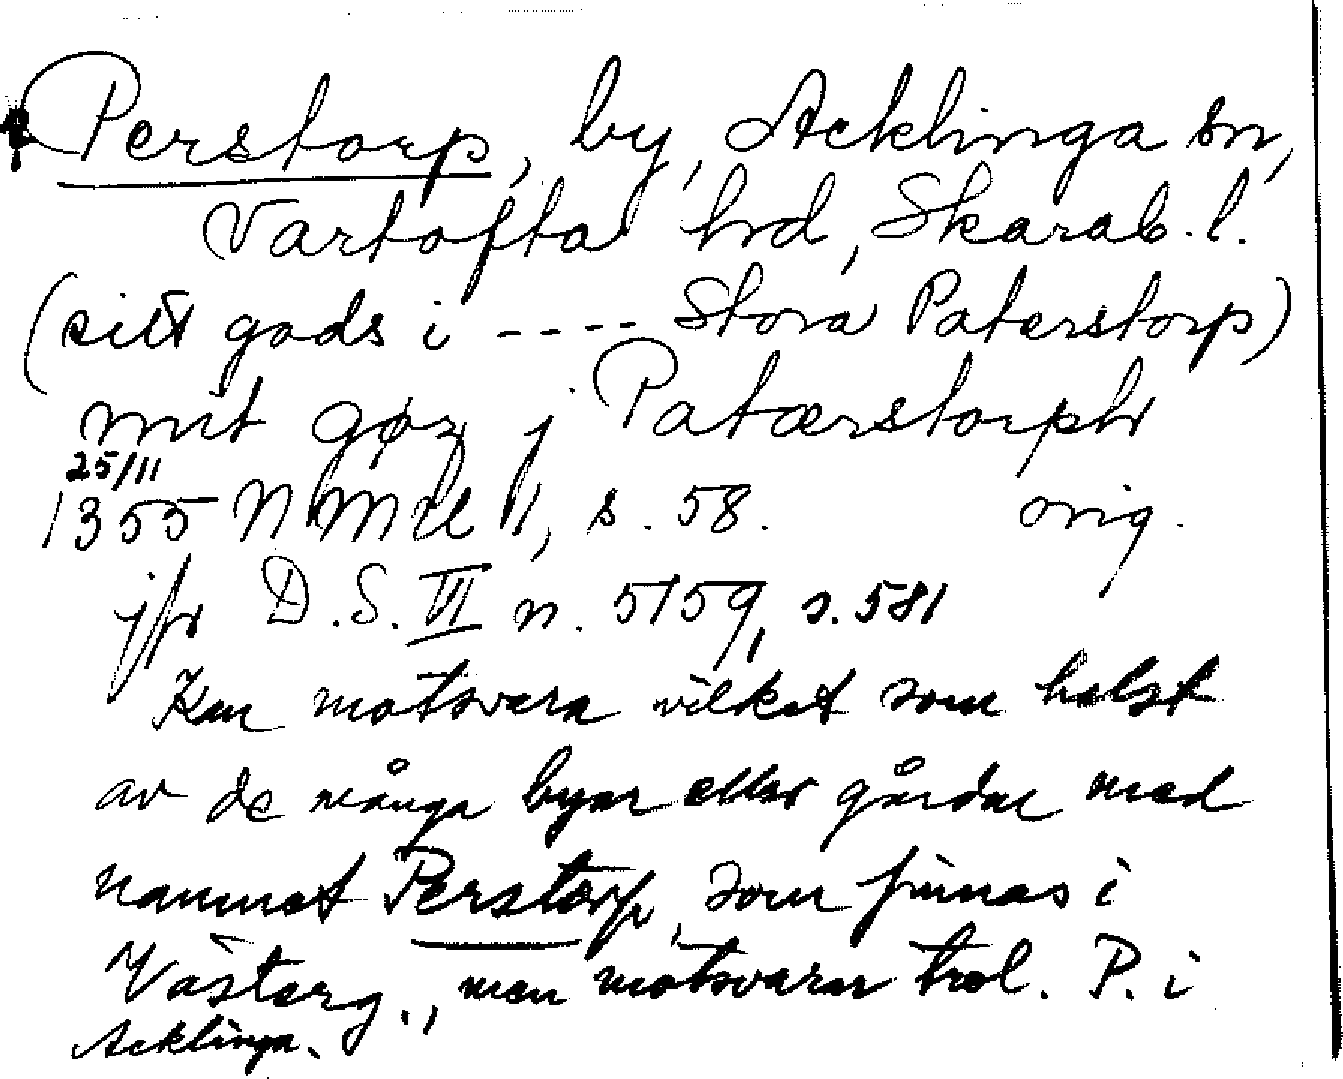 Perstorp, by, Acklinga sn,
Vartofta hrd, Skarab. l.
(sitt gods i ---- Stora Paterstorp)
mit gøz j Patærstorph
25/11
1355 NMRL 1, s. 58. orig.
jfr D.S. VI n. 5159, s. 581
Kan motsvara vilket som helst
av de många byar eller gårdar med
namnet Perstorp, som finnas i
Västerg., men motsvarar trol. P. i
Acklinga.